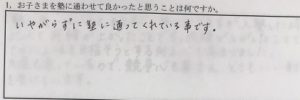 1, お子さまを塾に通わせて良かったと思うことは何ですか。
いやがらずに塾に通ってくれている事です。